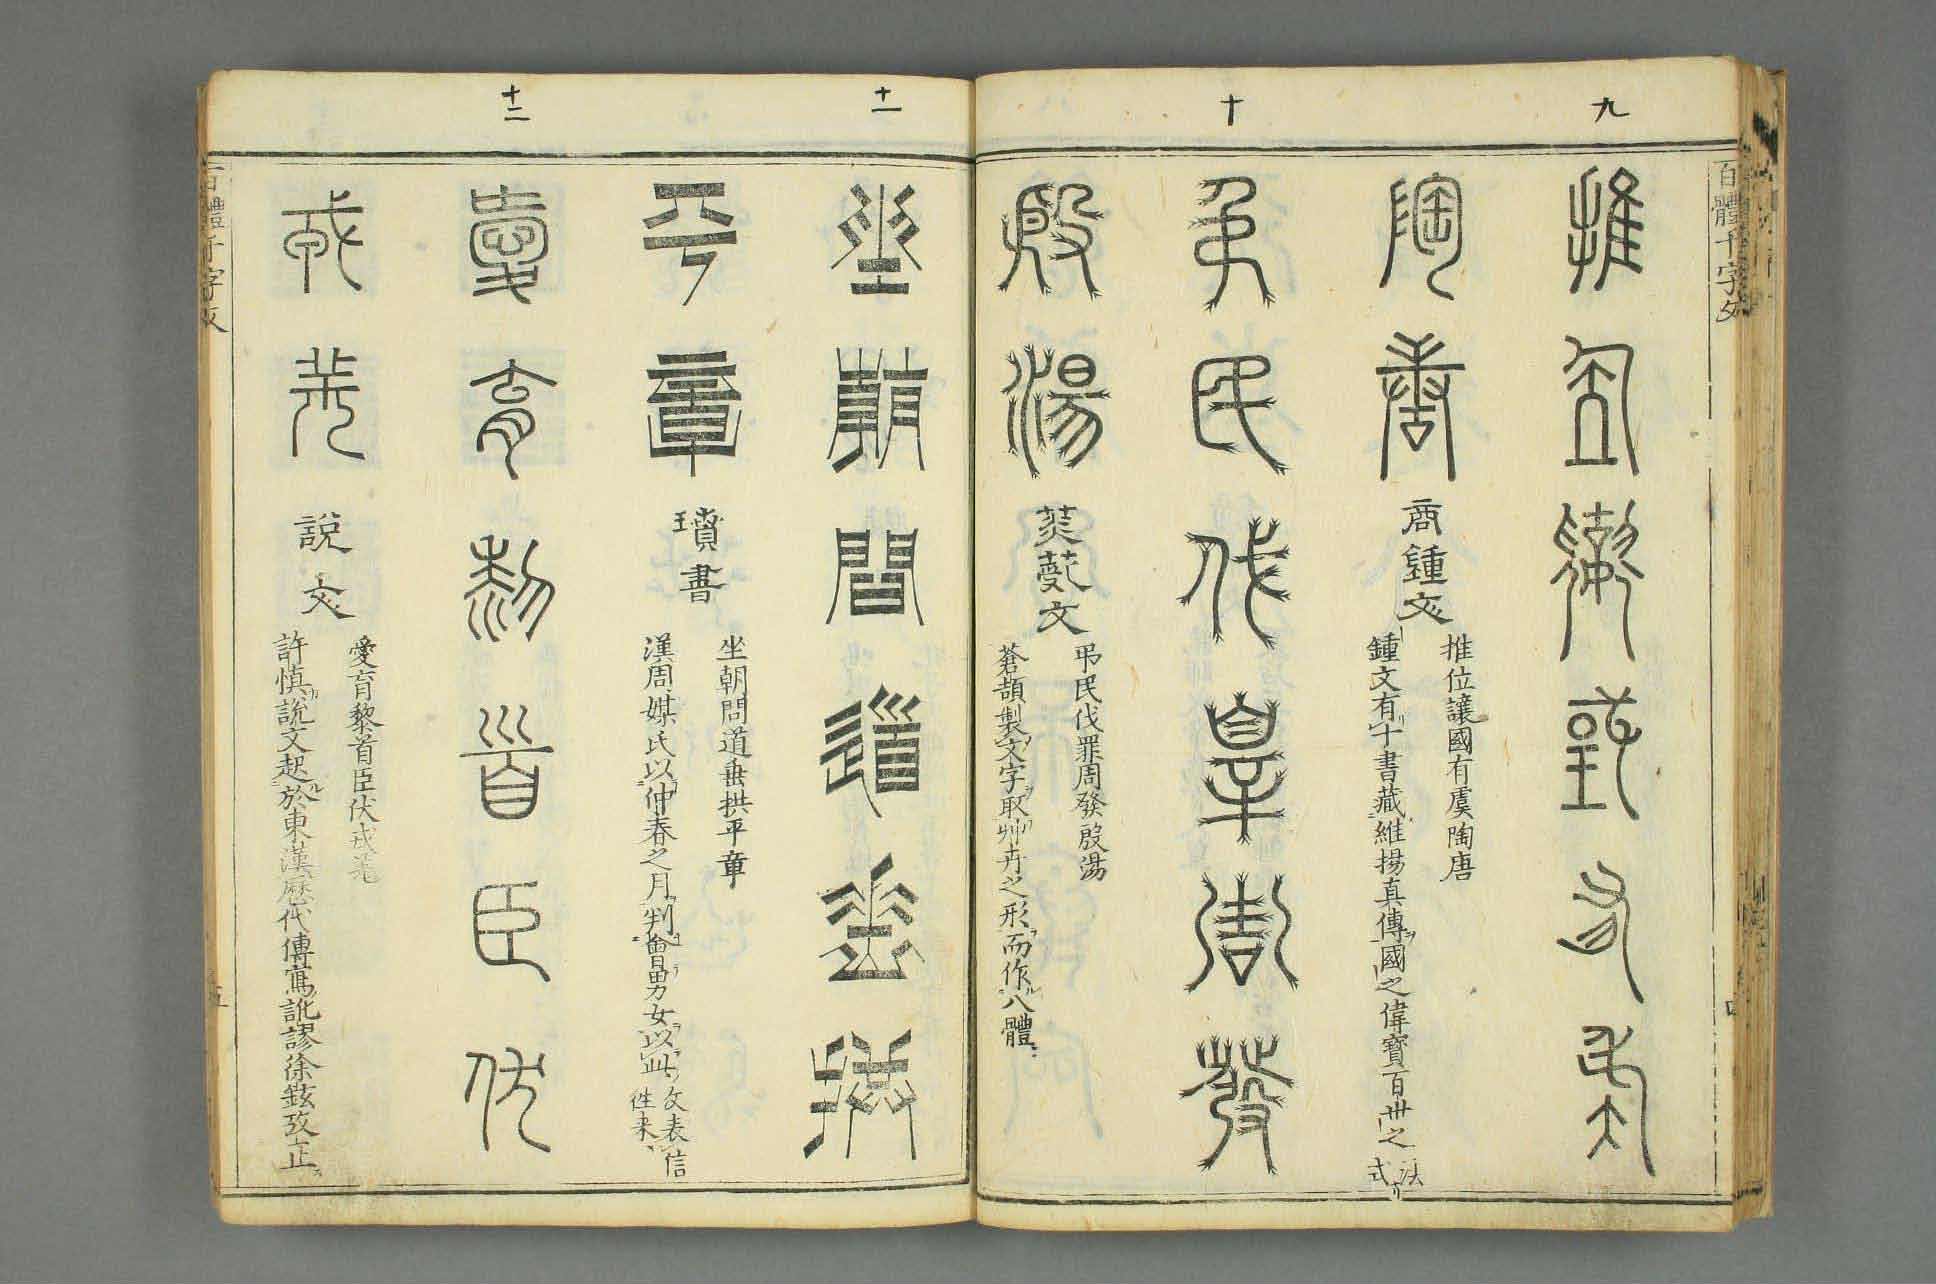 百體千字文
九
推位讓國有虞
陶唐
商鍾文
推位讓國有虞陶唐
鍾文有十書藏維揚真傳國之偉寶百卅之法式
十
弔民伐罪周發
殷湯
文
弔民伐罪周發殷湯
蒼頡製文字取艸卉之形而作八體
十一
坐朝問道垂拱
平章
瓄書
坐朝問道垂拱平章
漢周媒氏以仲春之月判會男女以此文表信徃来
十二
愛育黎首臣伏
戎羌
說文
愛育黎首臣伏戎羌
許慎說文起於東漢歷代傳寫訛謬徐鉉攷正
百體千字文
五